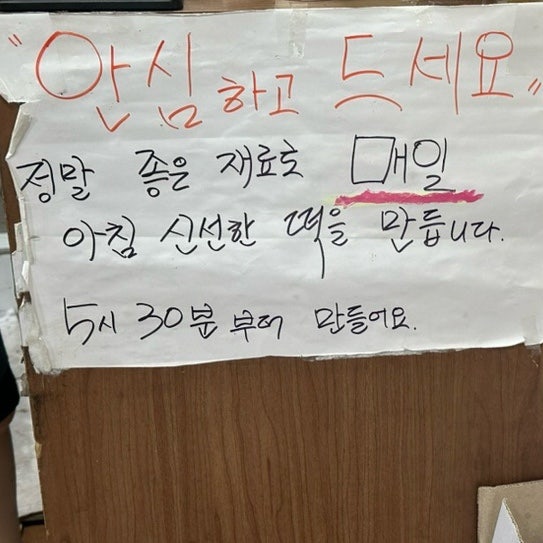 "안심하고 드세요"
정말 좋은 재료로 매일
아침 신선한 떡을 만듭니다.
5시 30분 부터 만들어요.